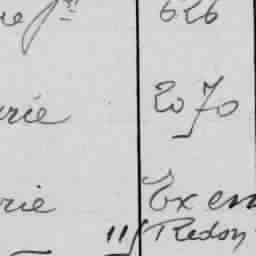 626
rie 2070
rie Exem
11 Redon